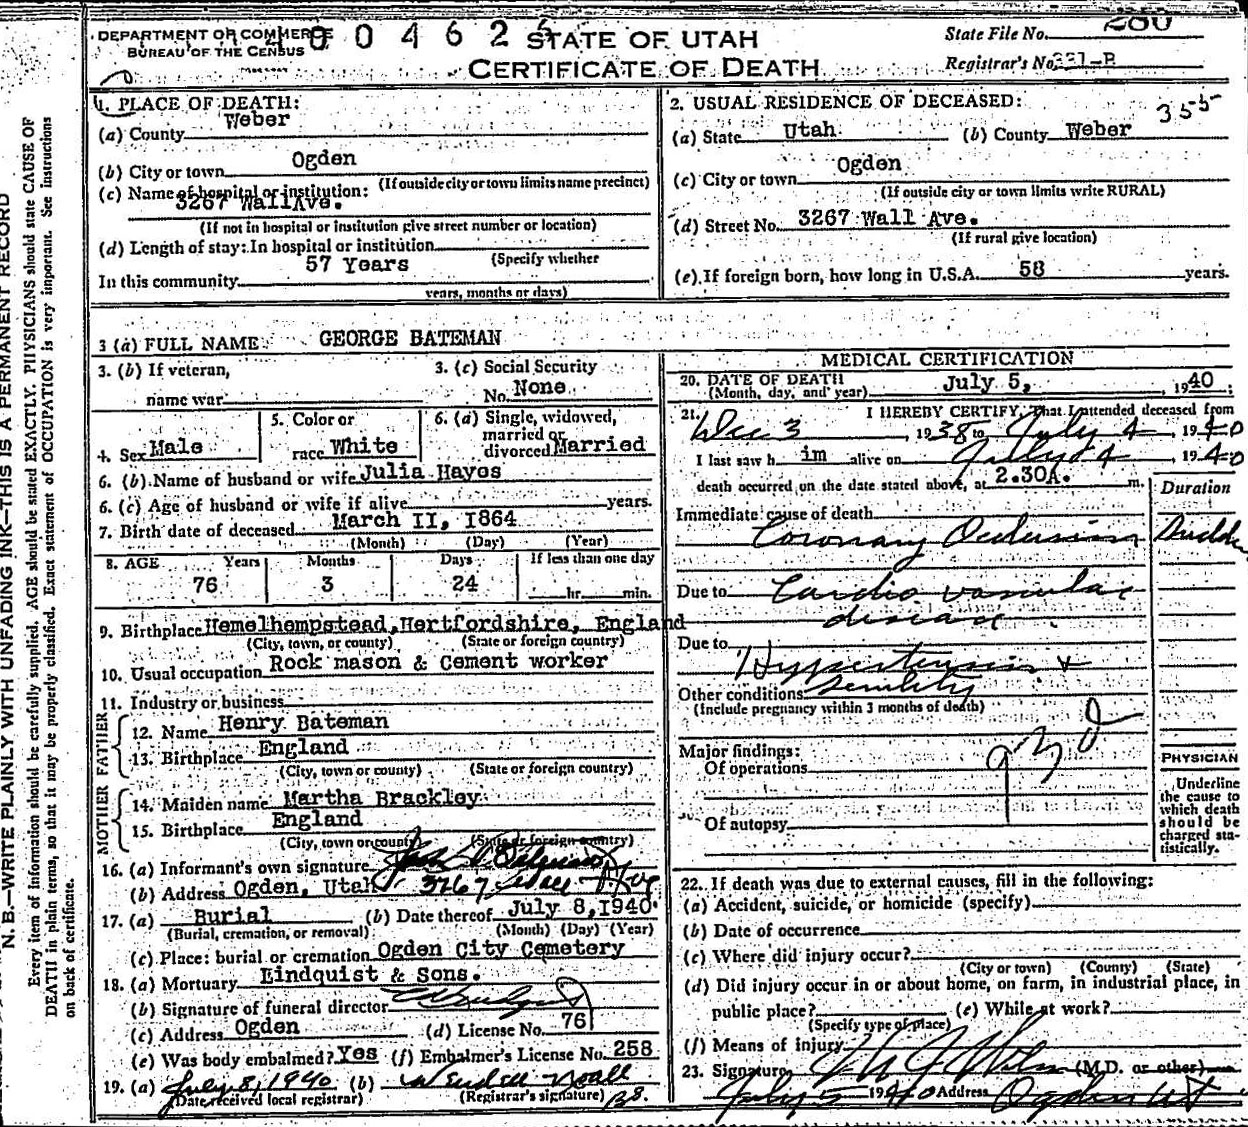 N. B.—WRITE PLAINLY WITH UNFADING INK—THIS IS A PERMANENT RECORD
Every item of information should be carefully supplied. AGE should be stated EXACTLY. PHYSICIANS should state CAUSE OF
DEATH in plain terms, so that it may be properly classified. Exact statement of OCCUPATION is very important. See instructions
on back of certificate.
DEPARTMENT OF COMMERCE
BUREAU OF THE CENSUS
STATE OF UTAH
CERTIFICATE OF DEATH
State File No. 280
Registrar's No. 
1. PLACE OF DEATH:
(a) County Weber
(b) City or town Ogden
(If outside city or town limits name precinct)
(c) Name of hospital or institution:
3267 Wall Ave.
(If not in hospital or institution give street number or location)
(d) Length of stay: In hospital or institution
(Specify whether
In this community 57 Years
years, months or days)
2. USUAL RESIDENCE OF DECEASED: 355
(a) State Utah (b) County Weber
(c) City or town Ogden
(If outside city or town limits write RURAL)
(d) Street No. 3267 Wall Ave.
(If rural give location)
(e) If foreign born, how long in U.S.A. 58 years.
3 (a) FULL NAME GEORGE BATEMAN
3. (b) If veteran,
name war
3. (c) Social Security
No. None
4. Sex Male
5. Color or
race White
6. (a) Single, widowed,
married or
divorced Married
6. (b) Name of husband or wife Julia Hayes
6. (c) Age of husband or wife if alive years.
7. Birth date of deceased March II, 1864
(Month) (Day) (Year)
8. AGE Years Months Days If less than one day
76 3 24 hr. min.
9. Birthplace Hemelhempstead, Hertfordshire, England
(City, town, or county) (State or foreign country)
10. Usual occupation Rock mason & Cement worker
11. Industry or business
FATHER
12. Name Henry Bateman
13. Birthplace England
(City, town or county) (State or foreign country)
MOTHER
14. Maiden name Martha Brackley
15. Birthplace England
(City, town or county) (State or foreign country)
16. (a) Informant's own signature
(b) Address Ogden, Utah 3267 Wall Ave
17. (a) Burial (b) Date thereof July 8, 1940
(Burial, cremation, or removal) (Month) (Day) (Year)
(c) Place: burial or cremation Ogden City Cemetery
18. (a) Mortuary Lindquist & Sons.
(b) Signature of funeral director
(c) Address Ogden (d) License No. 76
(e) Was body embalmed? Yes (f) Embalmer's License No. 258
19. (a) July 8, 1940 (b) Wendell Noall
(Date received local registrar) (Registrar's signature)
MEDICAL CERTIFICATION
20. DATE OF DEATH July 5, 1940
(Month, day, and year)
21. I HEREBY CERTIFY, That I attended deceased from
Dec 3 1938 to July 4 1940
I last saw h im alive on July 4 1940
death occurred on the date stated above, at 2.30A. m.
Duration
Immediate cause of death
Coronary Occlusion Sudden
Due to Cardio vascular
disease
Due to Hypertension &
senility
Other conditions
(Include pregnancy within 3 months of death)
Major findings:
Of operations
Of autopsy
PHYSICIAN
Underline
the cause to
which death
should be
charged sta-
tistically.
22. If death was due to external causes, fill in the following:
(a) Accident, suicide, or homicide (specify)
(b) Date of occurrence
(c) Where did injury occur?
(City or town) (County) (State)
(d) Did injury occur in or about home, on farm, in industrial place, in
public place? (e) While at work?
(Specify type of place)
(f) Means of injury
23. Signature (M.D. or other)
July 5 1940 Address Ogden Ut